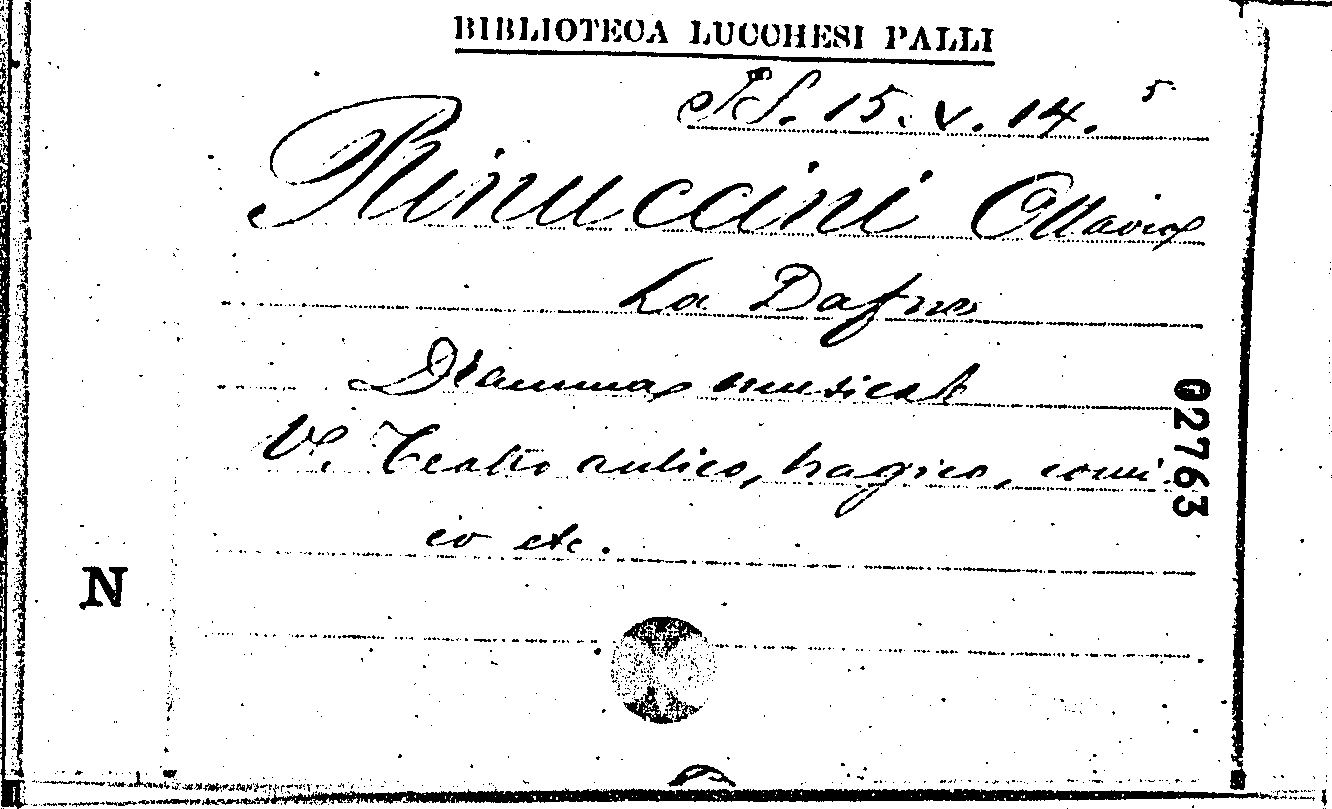 BIBLIOTECA LUCCHESI PALLI
15. V. 14. 5
Rinuccini Ottavio
La Dafne
Dramma musicale
V. Teatro antico, tragico, comi-
co etc.
02763
N